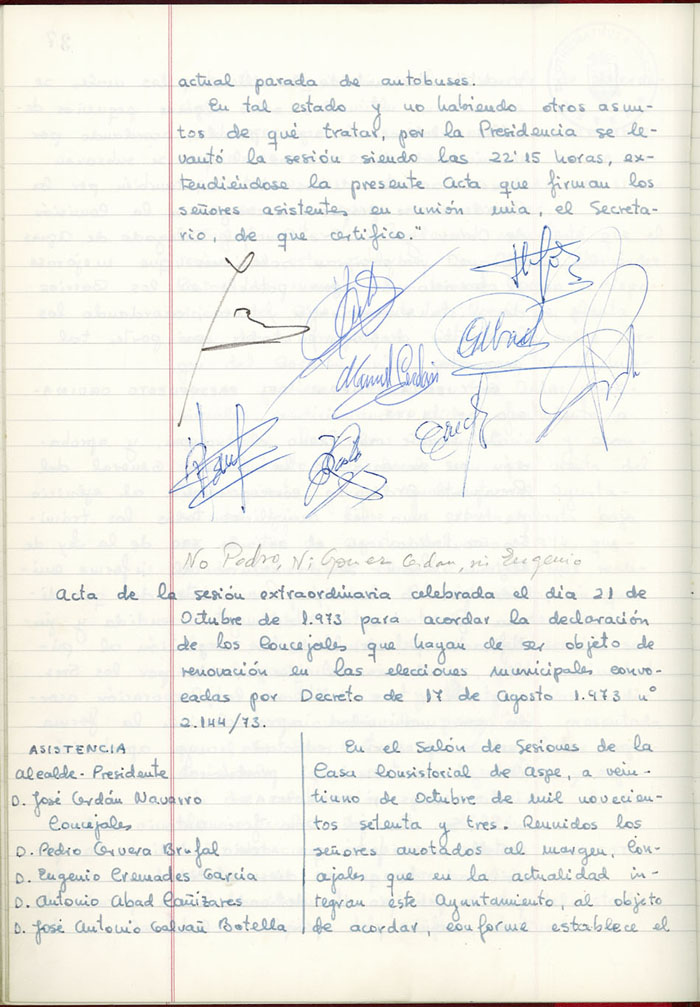 actual parada de autobuses.
En tal estado y no habiendo otros asun-
tos de qué tratar, por la Presidencia se le-
vantó la sesión siendo las 22'15 horas, ex-
tendiéndose la presente Acta que firman los
señores asistentes en unión mia, el Secreta-
rio, de que certifico."
Manuel Cerdán
No Pedro, Ni Gomez Cerdan, ni Eugenio
Acta de la sesión extraordinaria celebrada el día 21 de
Octubre de 1.973 para acordar la declaración
de los Concejales que hayan de ser objeto de
renovación en las elecciones municipales convo-
cadas por Decreto de 17 de Agosto 1.973 nº
2.144/73.
ASISTENCIA
Alcalde-Presidente
D. José Cerdán Navarro
Concejales
D. Pedro Cervera Brufal
D. Eugenio Cremades García
D. Antonio Abad Cañizares
D. José Antonio Galvañ Botella
En el Salón de Sesiones de la
Casa Consistorial de Aspe, a vein-
tiuno de Octubre de mil novecien-
tos setenta y tres. Reunidos los
señores anotados al margen, Con-
cejales que en la actualidad in-
tegran este Ayuntamiento, al objeto
de acordar, conforme establece el